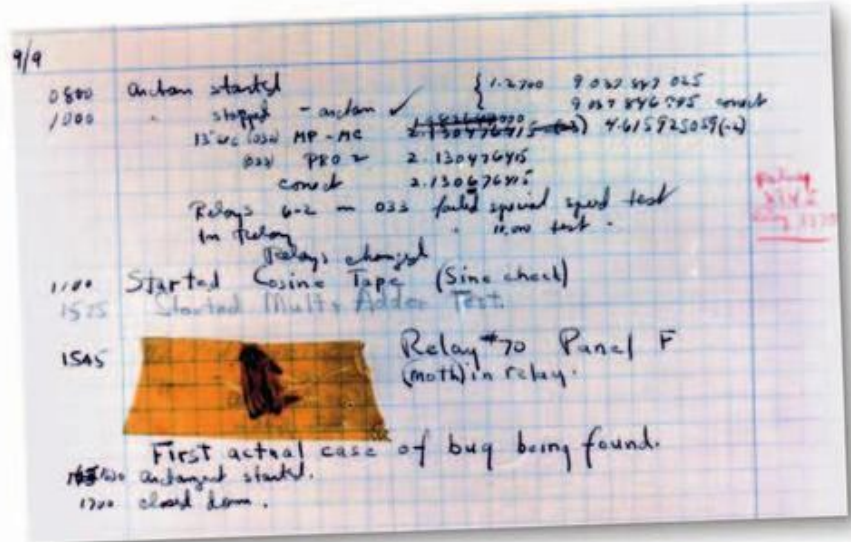 9/9
0800 antan started { 1.2700 9.037 847 025
1000 " stopped - antan ✓ 9.037 846 995 correct
13"uc (032) MP - MC 2.130476415 4.615925059(-2)
(033) PRO 2 2.130476415
correct 2.130676415
Relays 6-2 in 033 failed special speed test
In Relay " 10,000 test .
Relays changed
1100 Started Cosine Tape (Sine check)
1525 Started Mult + Adder Test.
1545 Relay #70 Panel F
(moth) in relay.
First actual case of bug being found.
1630 antangent started.
1700 closed down.
Relay